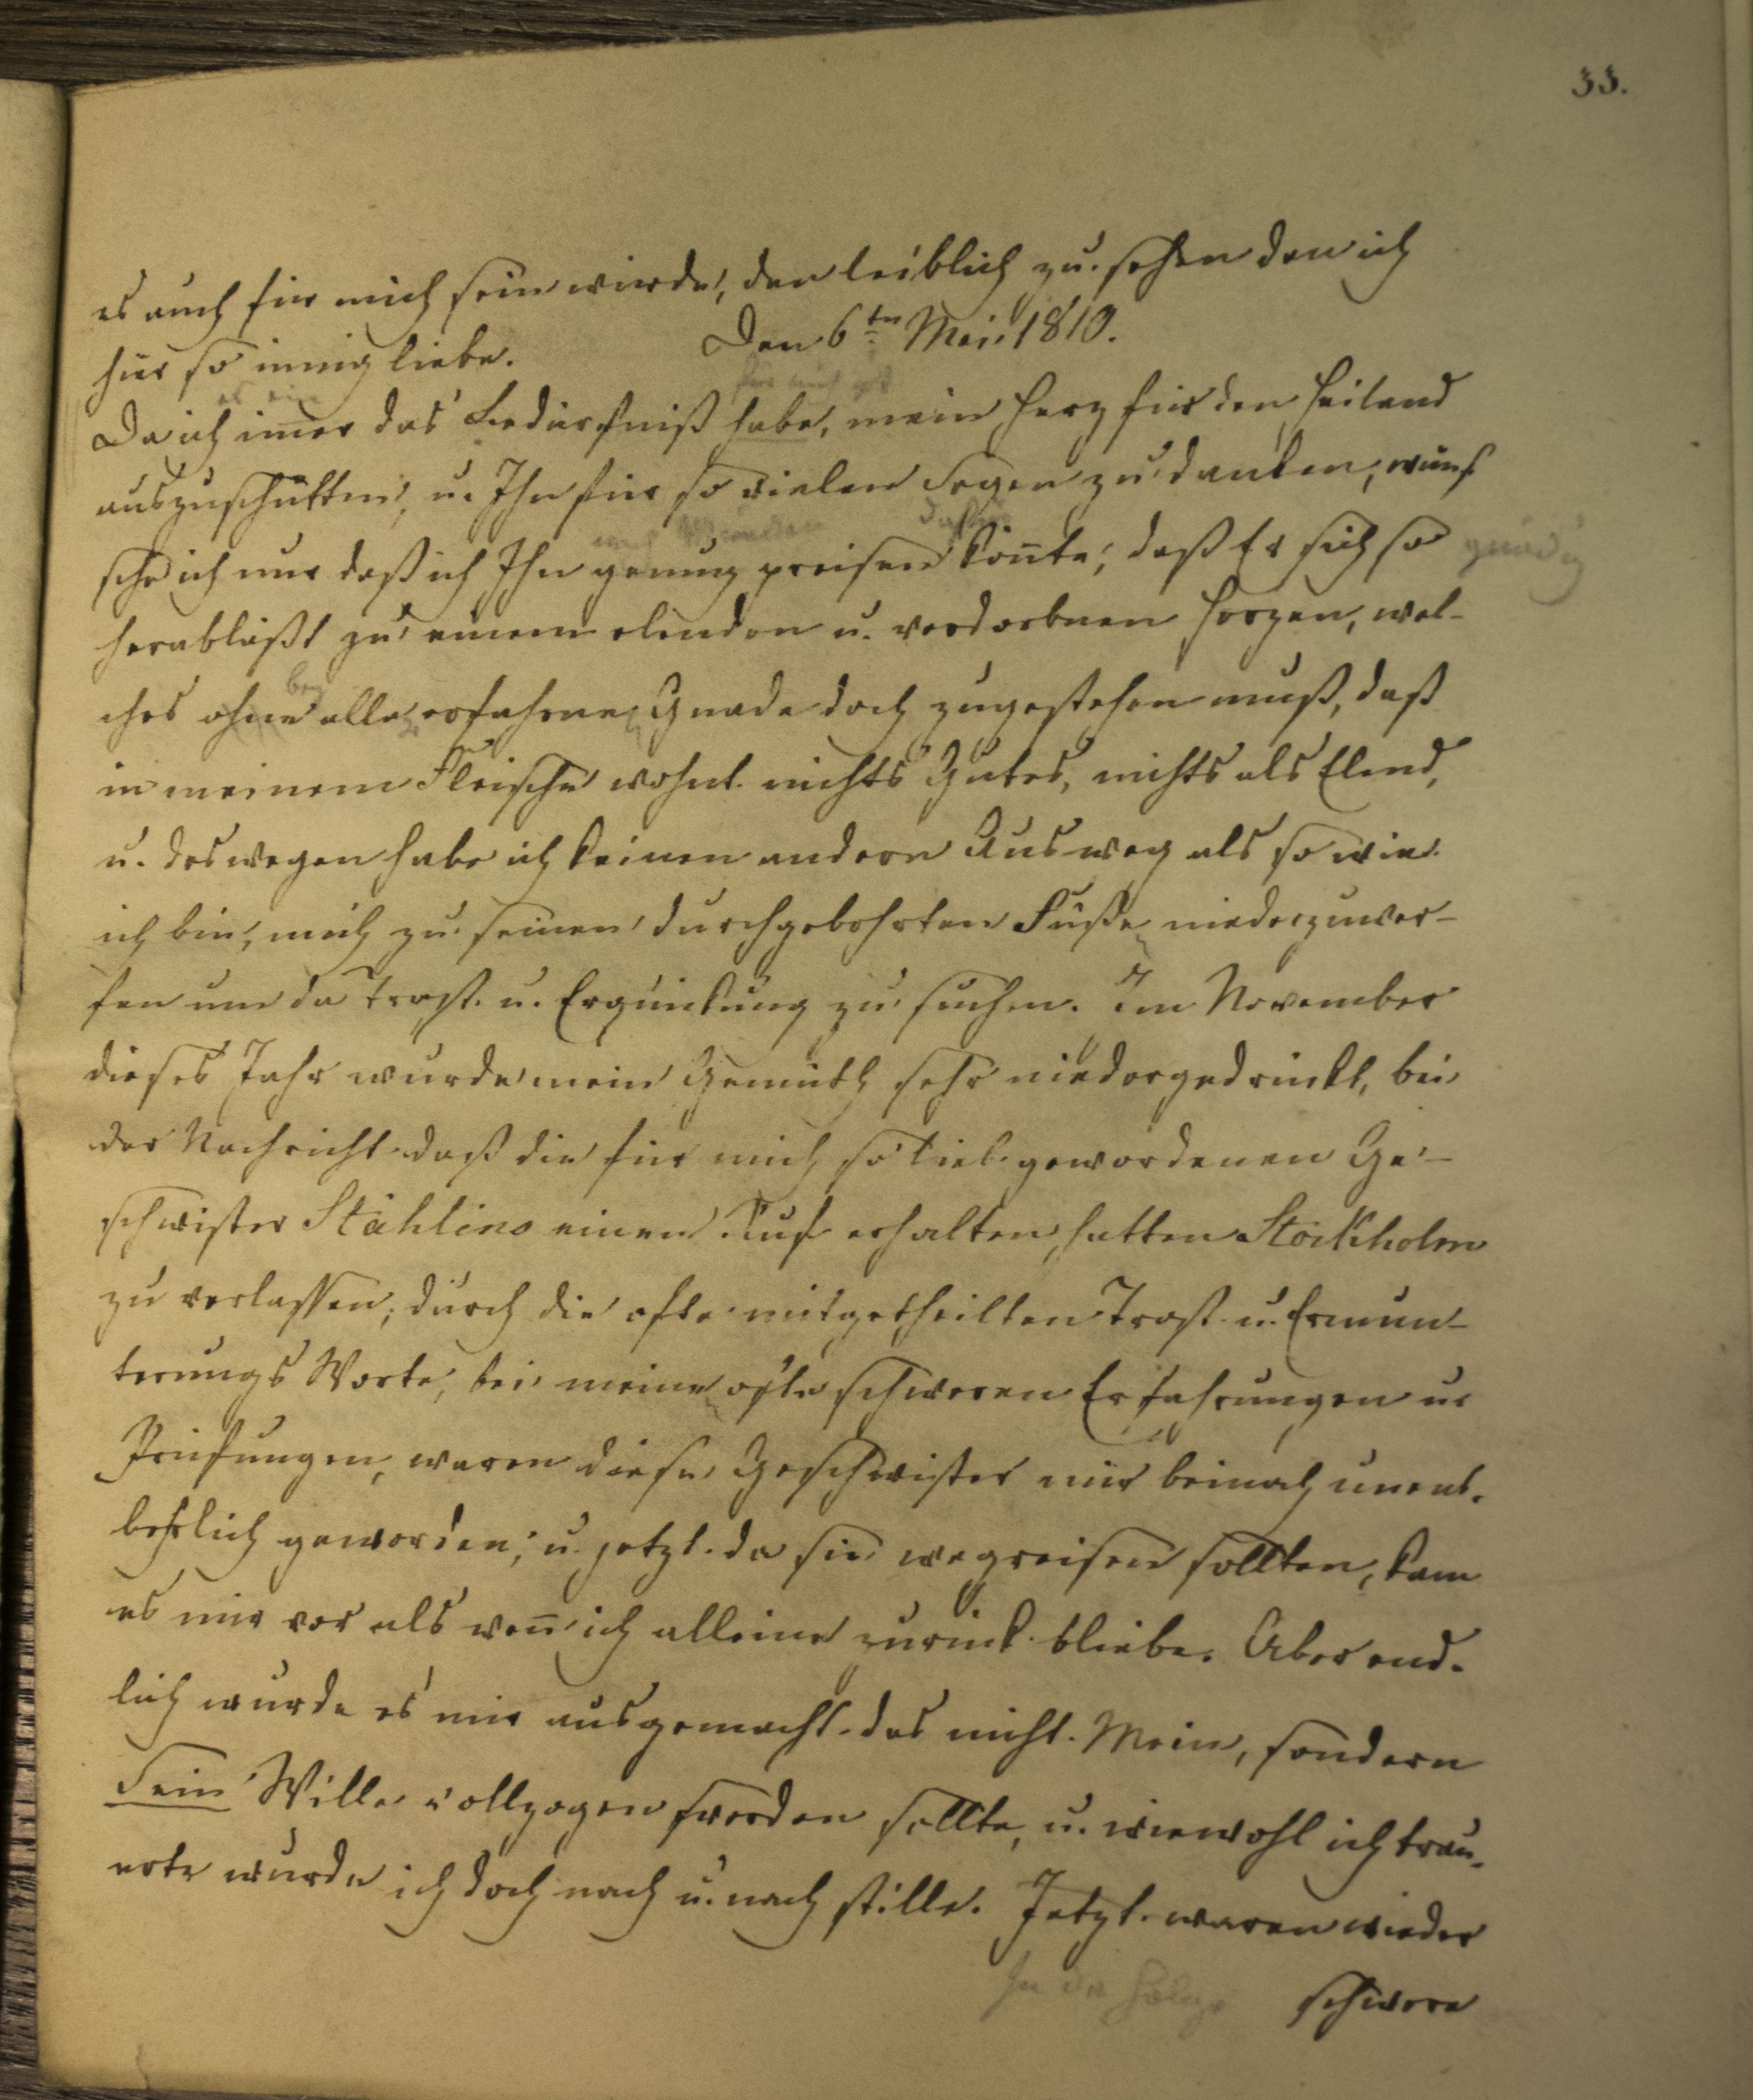 33.
es auch für mich sein würde, den leiblich zu sehen den ich
hier so innig liebe. Den 6ten Mai 1810.
es ein für mich ist
Da ich im̄er das Bedürfniß habe, mein Herz für den Heiland
auszuschütten, u. Ihn für so vielen Segen zu danken, wün-
dafür
sche ich nur daß ich Ihn genug preisen kön̄te, daß Er sich so gnädig
herabläßt zu einem elenden u. verdorbnen Herzen, wel-
bey
ches ohne alle erfahrne Gnade doch zugestehen muß, daß
in meinem Fleische wohnt nichts Gutes, nichts als Elend,
u. deswegen habe ich keinen andern Ausweg als so wie
ich bin, mich zu seinen durchgebohrten Füße niederzuwer-
fen um da Trost u. Erquickung zu suchen. Im November
dieses Jahr wurde mein Gemüth sehr niedergedrückt, bei
der Nachricht daß die für mich so lieb gewordenen Ge-
schwister Stählins einen Ruf erhalten hatten Stockholm
zu verlassen; durch die ofte mitgetheilten Trost u. Ermun-
terungs Worte, bei meine ofte schweren Erfahrungen u.
Prüfungen, waren diese Geschwister mir beinah unent-
behrlich geworden; u. jetzt da sie wegreisen sollten, kam
es mir vor als wen̄ ich alleine zurück bliebe. Aber end-
lich wurde es mir ausgemacht das nicht Mein, sondern
Sein Wille vollzogen werden sollte, u. wiewohl ich trau-
erte wurde ich doch nach u. nach stille. Jetzt waren wieder
In der Folge schwere